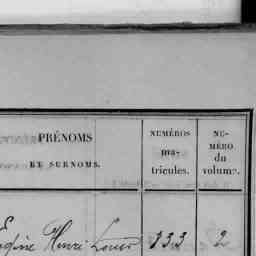 PRÉNOMS
ET SURNOMS.
NUMÉROS
ma-
tricules.
NU-
MÉRO
du
volume.
Henri Louis 133 2